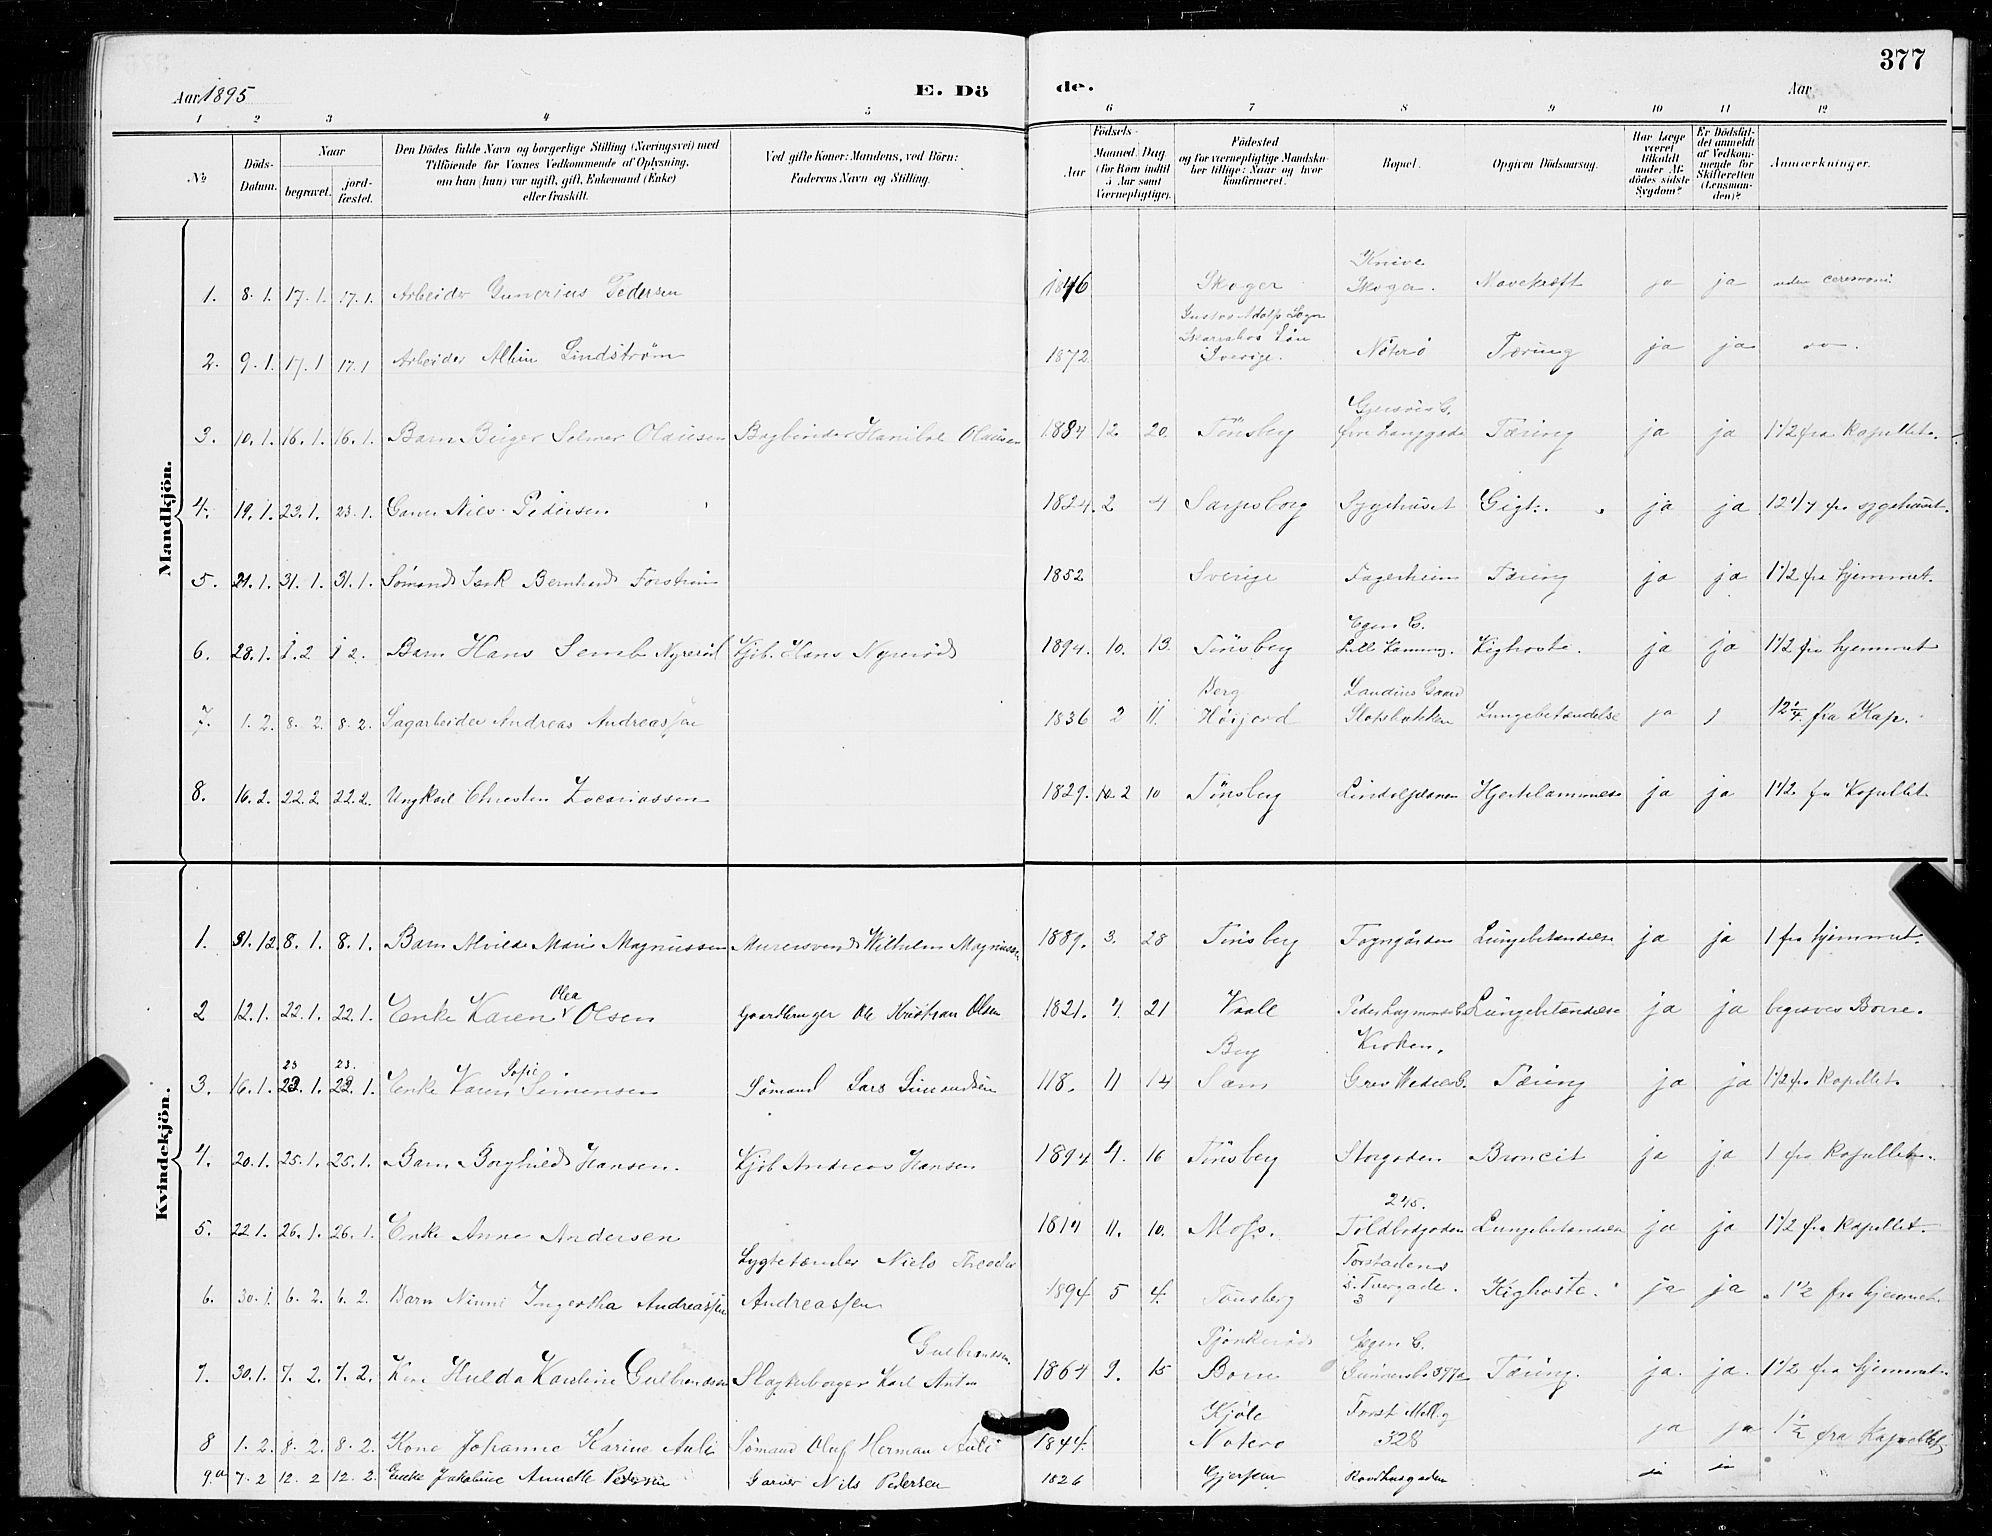 377
Aar 1895 E. Dö de. Aar
1 2 3 4 5 6 7 8 9 10 11 12
No
Döds-Datum.
Naar
begravet.
jord-fæstet.
Den Dödes fulde Navn og borgerlige Stilling (Næringsvei) med
Tilföiende for Voxnes Vedkommende af Oplysning,
om han (hun) var ugift, gift, Enkemand (Enke)
eller fraskilt.
Ved gifte Koner: Mandens, ved Börn:
Faderens Navn og Stilling.
Födsels-
Aar
Maaned. Dag
(for Börn indtil
5 Aar samt
Værnepligtige).
Födested
og for værnepligtige Mandska-
ber tillige: Naar og hvor
konfirmeret.
Bopæl.
Opgiven Dödsaarsag.
Har Læge
været
tilkaldt
under Af-
dödes sidste
Sygdom?
Er Dödsfal-
det anmeldt
af Vedkom-
mende for
Skifteretten
(Lensman-
den)?
Anmærkninger.
Mandkjön.
Knive
1. 8. 1. 17. 1. 17. 1. Arbeider Gunerius Pedersen 1846 Skoger Skoger. Mavekræft ja ja uden ceremoni
Gustav Adolfs Sogn
Skaraborg Län
2. 9. 1. 17. 1 17. 1 Arbeider Albin Lindström 1872 Sverige. Nöterö Tæring ja ja
3. 10. 1. 16. 1. 16. 1. Barn Birger Selmer Olausen Bogbinder Hanibal Olausen 1884 12. 20. Tönsberg övre Langgade Tæring ja ja 1 1/2 fra Kapellet.
4. 19. 1. 23. 1. 23. 1. Garver Niels Pedersen 1824. 2 4 Sarpsborg Sygehuset Gigt. ja ja 12 1/4 fra sygehuset.
5. 21. 1. 31. 1. 31. 1. Sömand Isak Bernhard Forström 1852 Sverige Fagerheim Tæring ja ja 1 1/2 fra hjemmet.
Egen G.
6. 28. 1. 1. 2 1 2. Barn Hans Semb Nyreröd Kjöb. Hans Nyreröd 1894. 10. 13. Tönsberg Kighoste. ja ja 1 1/2 fra hjemmet
Berg Landins Gaard
7. 1. 2. 8. 2. 8. 2. Sagarbeider Andreas Andreassen 1836 2 11. Höijord Slotsbakken Lungebetændelse ja j 12 1/4 fra Kap.
8. 16. 2. 22. 2 22. 2. Ungkarl Christen Zacariassen 1829. 10. 2 10 Tönsberg Hjertelammelse ja ja 1 1/2 fra Kapellet
Kvindekjön.
1. 31. 12. 8. 1. 8. 1. Barn Alvilde Marie Magnussen Murersvend Wilhelm Magnussen 1889. 3. 28 Tönsberg Lungebetændelse ja ja 1 fra hjemmet.
Olea
2 12. 1. 22. 1. 22. 1. Enke Karen Olsen Gaardbruger Ole Kristian Olsen 1821. 4. 21 Vaale Lungebetændelse ja ja begraves Borre.
23 23. Sofie Berg Kroken,
3. 16. 1. 23. 1. 22. 1. Enke Karen Simensen Sömand Lars Simensen 118. 11 14 Sem Grev Wedels G. Tæring ja ja 1 1/2 fra Kapellet.
4. 20. 1. 25. 1. 25. 1. Barn Borghild Hansen. Kjöb Andreas Hansen 1894 4. 16 Tönsberg Storgaden Broncit ja ja 1 fra Kapellet.
245.
5. 22 1. 26. 1. 26. 1. Enke Anne Andersen 1814 11. 10. Moss. Toldbodgaden Lungebetændelse ja ja 1 1/2 fra Kapellet.
Lygtetænder Niels Theodor Forstadens
6. 30. 1. 6. 2. 6. 2. Barn Ninni Ingertha Andreassen Andreassen 1894 5 4. Tönsberg Tvergade. 3 Kighoste. ja ja 1 1/2 fra hjemmet.
Gulbransen Egen G.
7. 30. 1. 7. 2. 7. 2. Kone Hulda Karoline Gulbrandsen Slagterborger Karl Anton 1864 9. 15 Borre Gunnersbo 377a Tæring. ja. ja. 1 1/2 fra hjemmet
Kjöle
8 1. 2. 8. 2. 8. 2. Kone Johanne Karine Auli Sömand Oluf Herman Auli 1844. Nöterö 328 ja ja 1 1/2 fra Kapellet
9a 7. 2 12. 2 12. 2. Enke Jakobine Annette Pedersen Garver Nils Pedersen 1826 Gjerpen Raadhusgaden ja ja